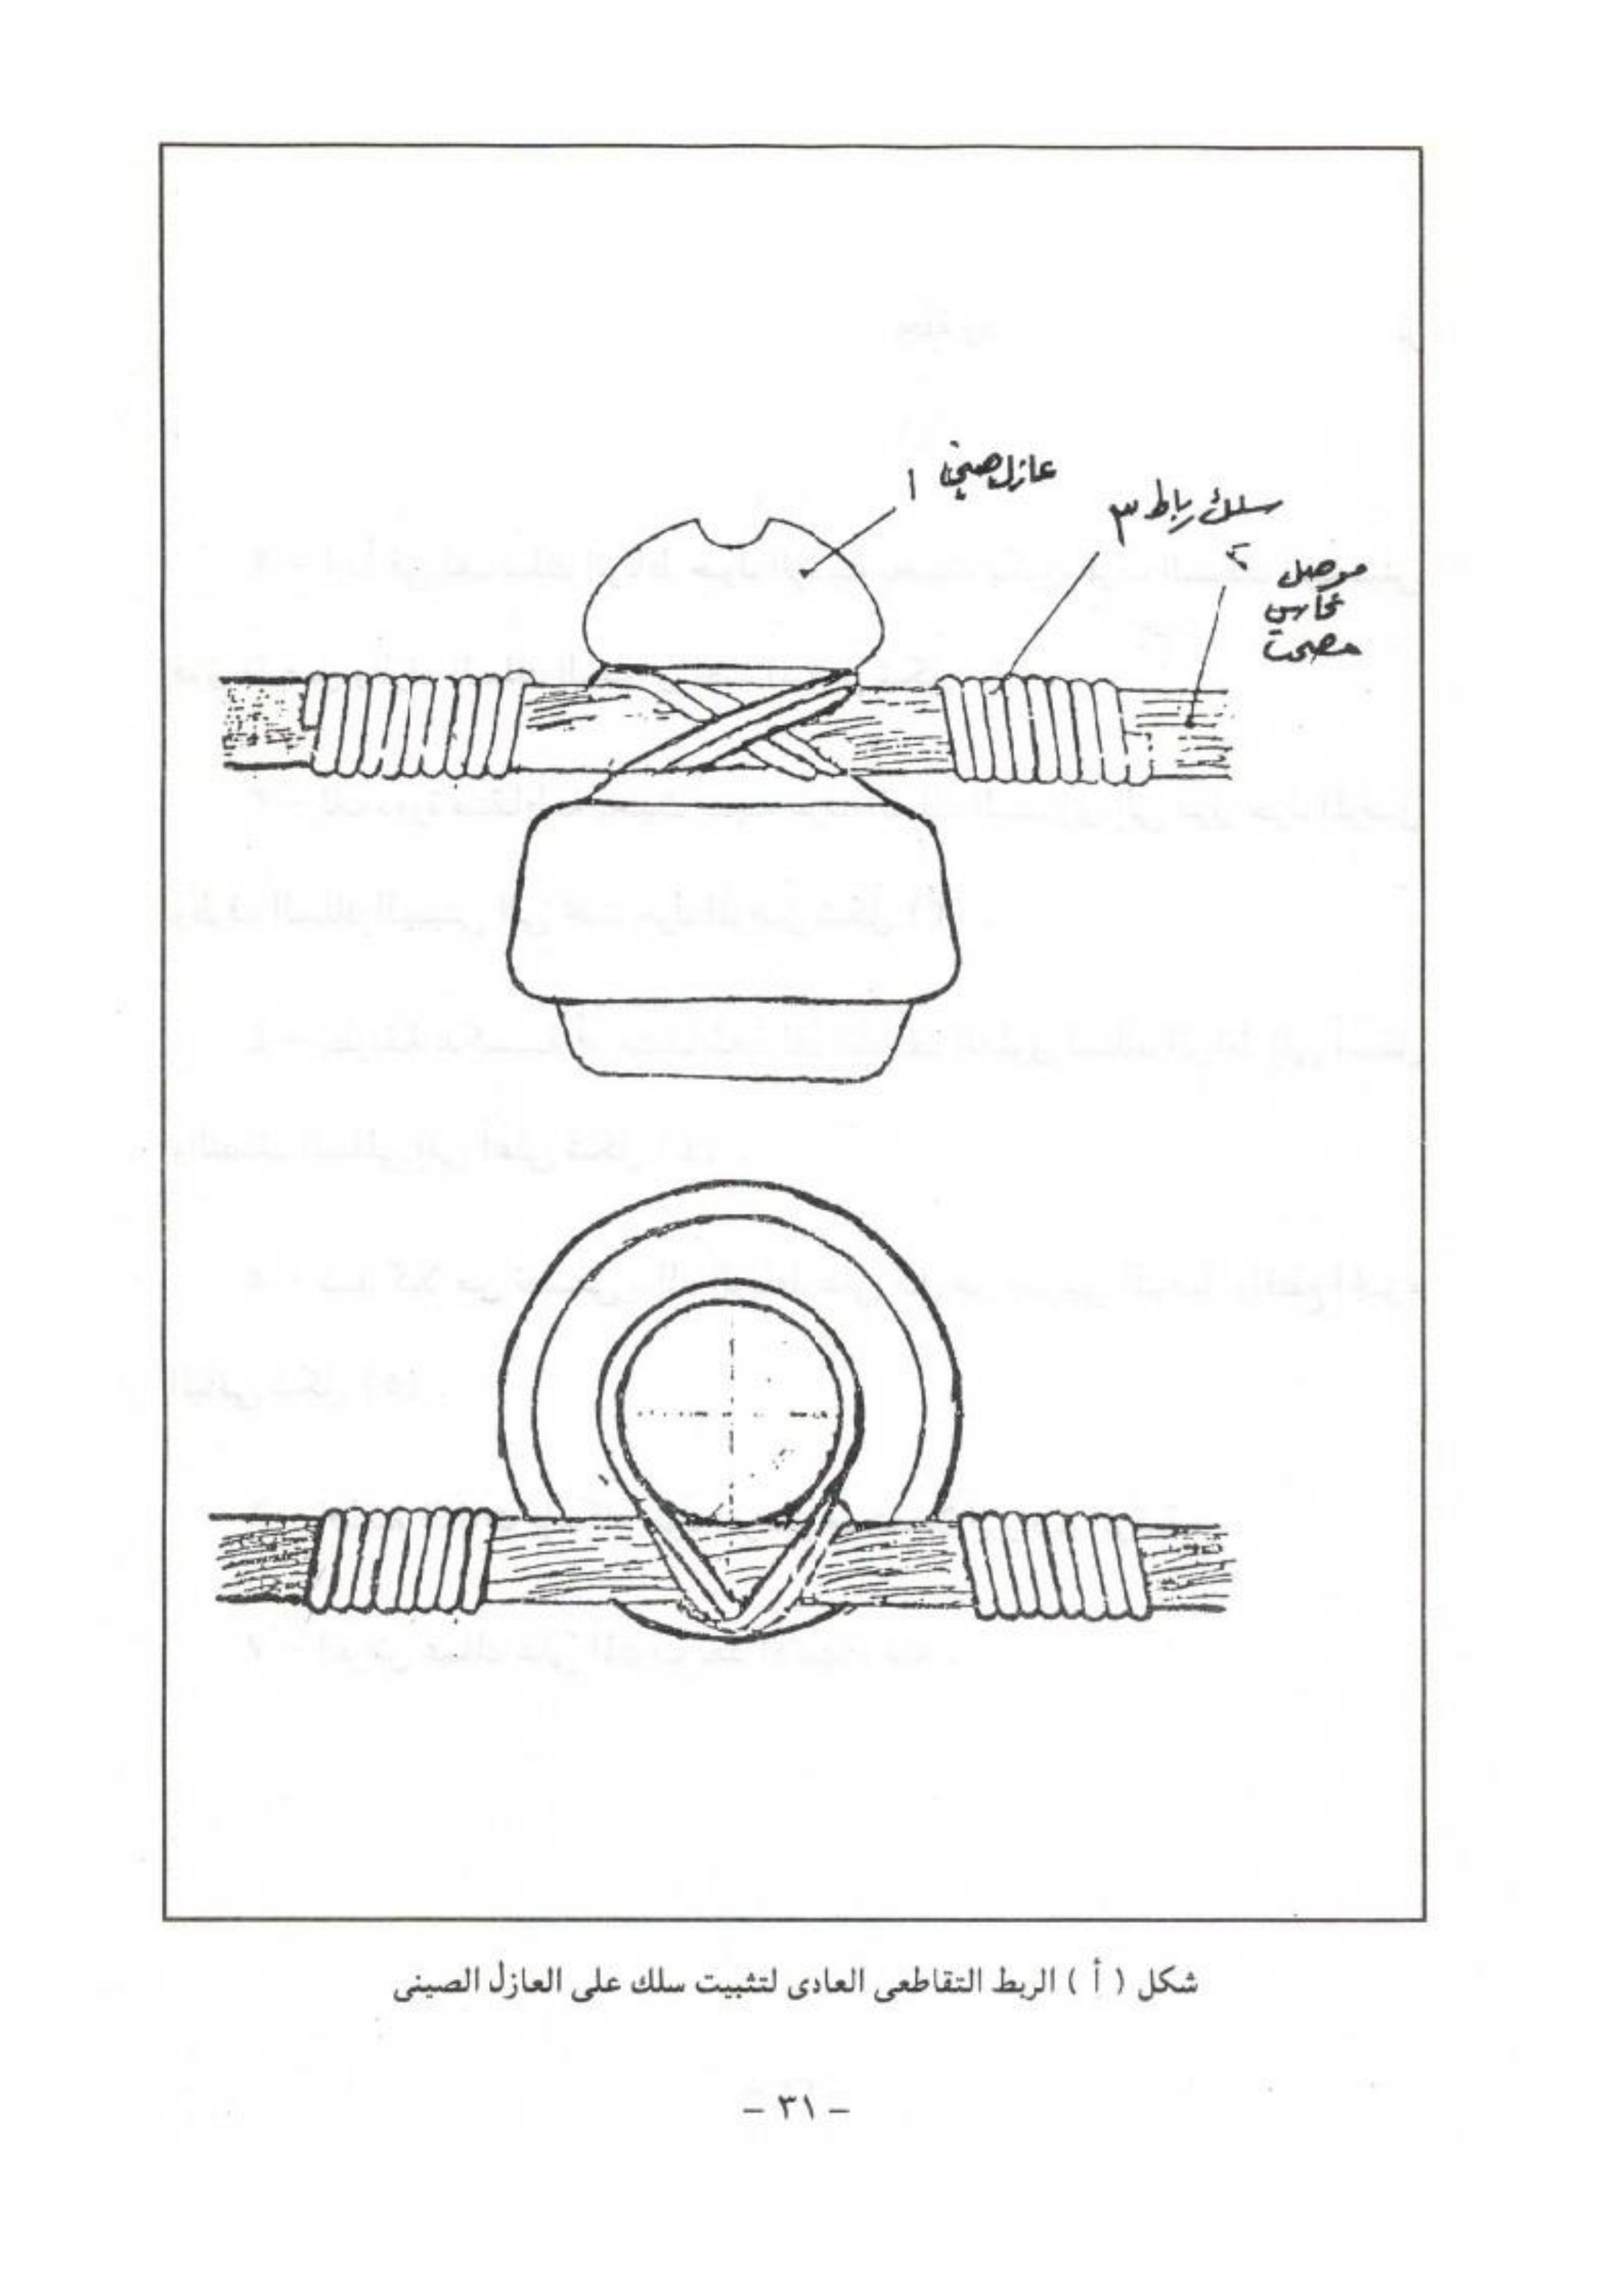 عازل صيني ١
سلك رباط ٣
٢
موصل
نحاس
مصمت
شكل ( أ ) الربط التقاطعى العادى لتثبيت سلك على العازل الصينى
– ٣١ –